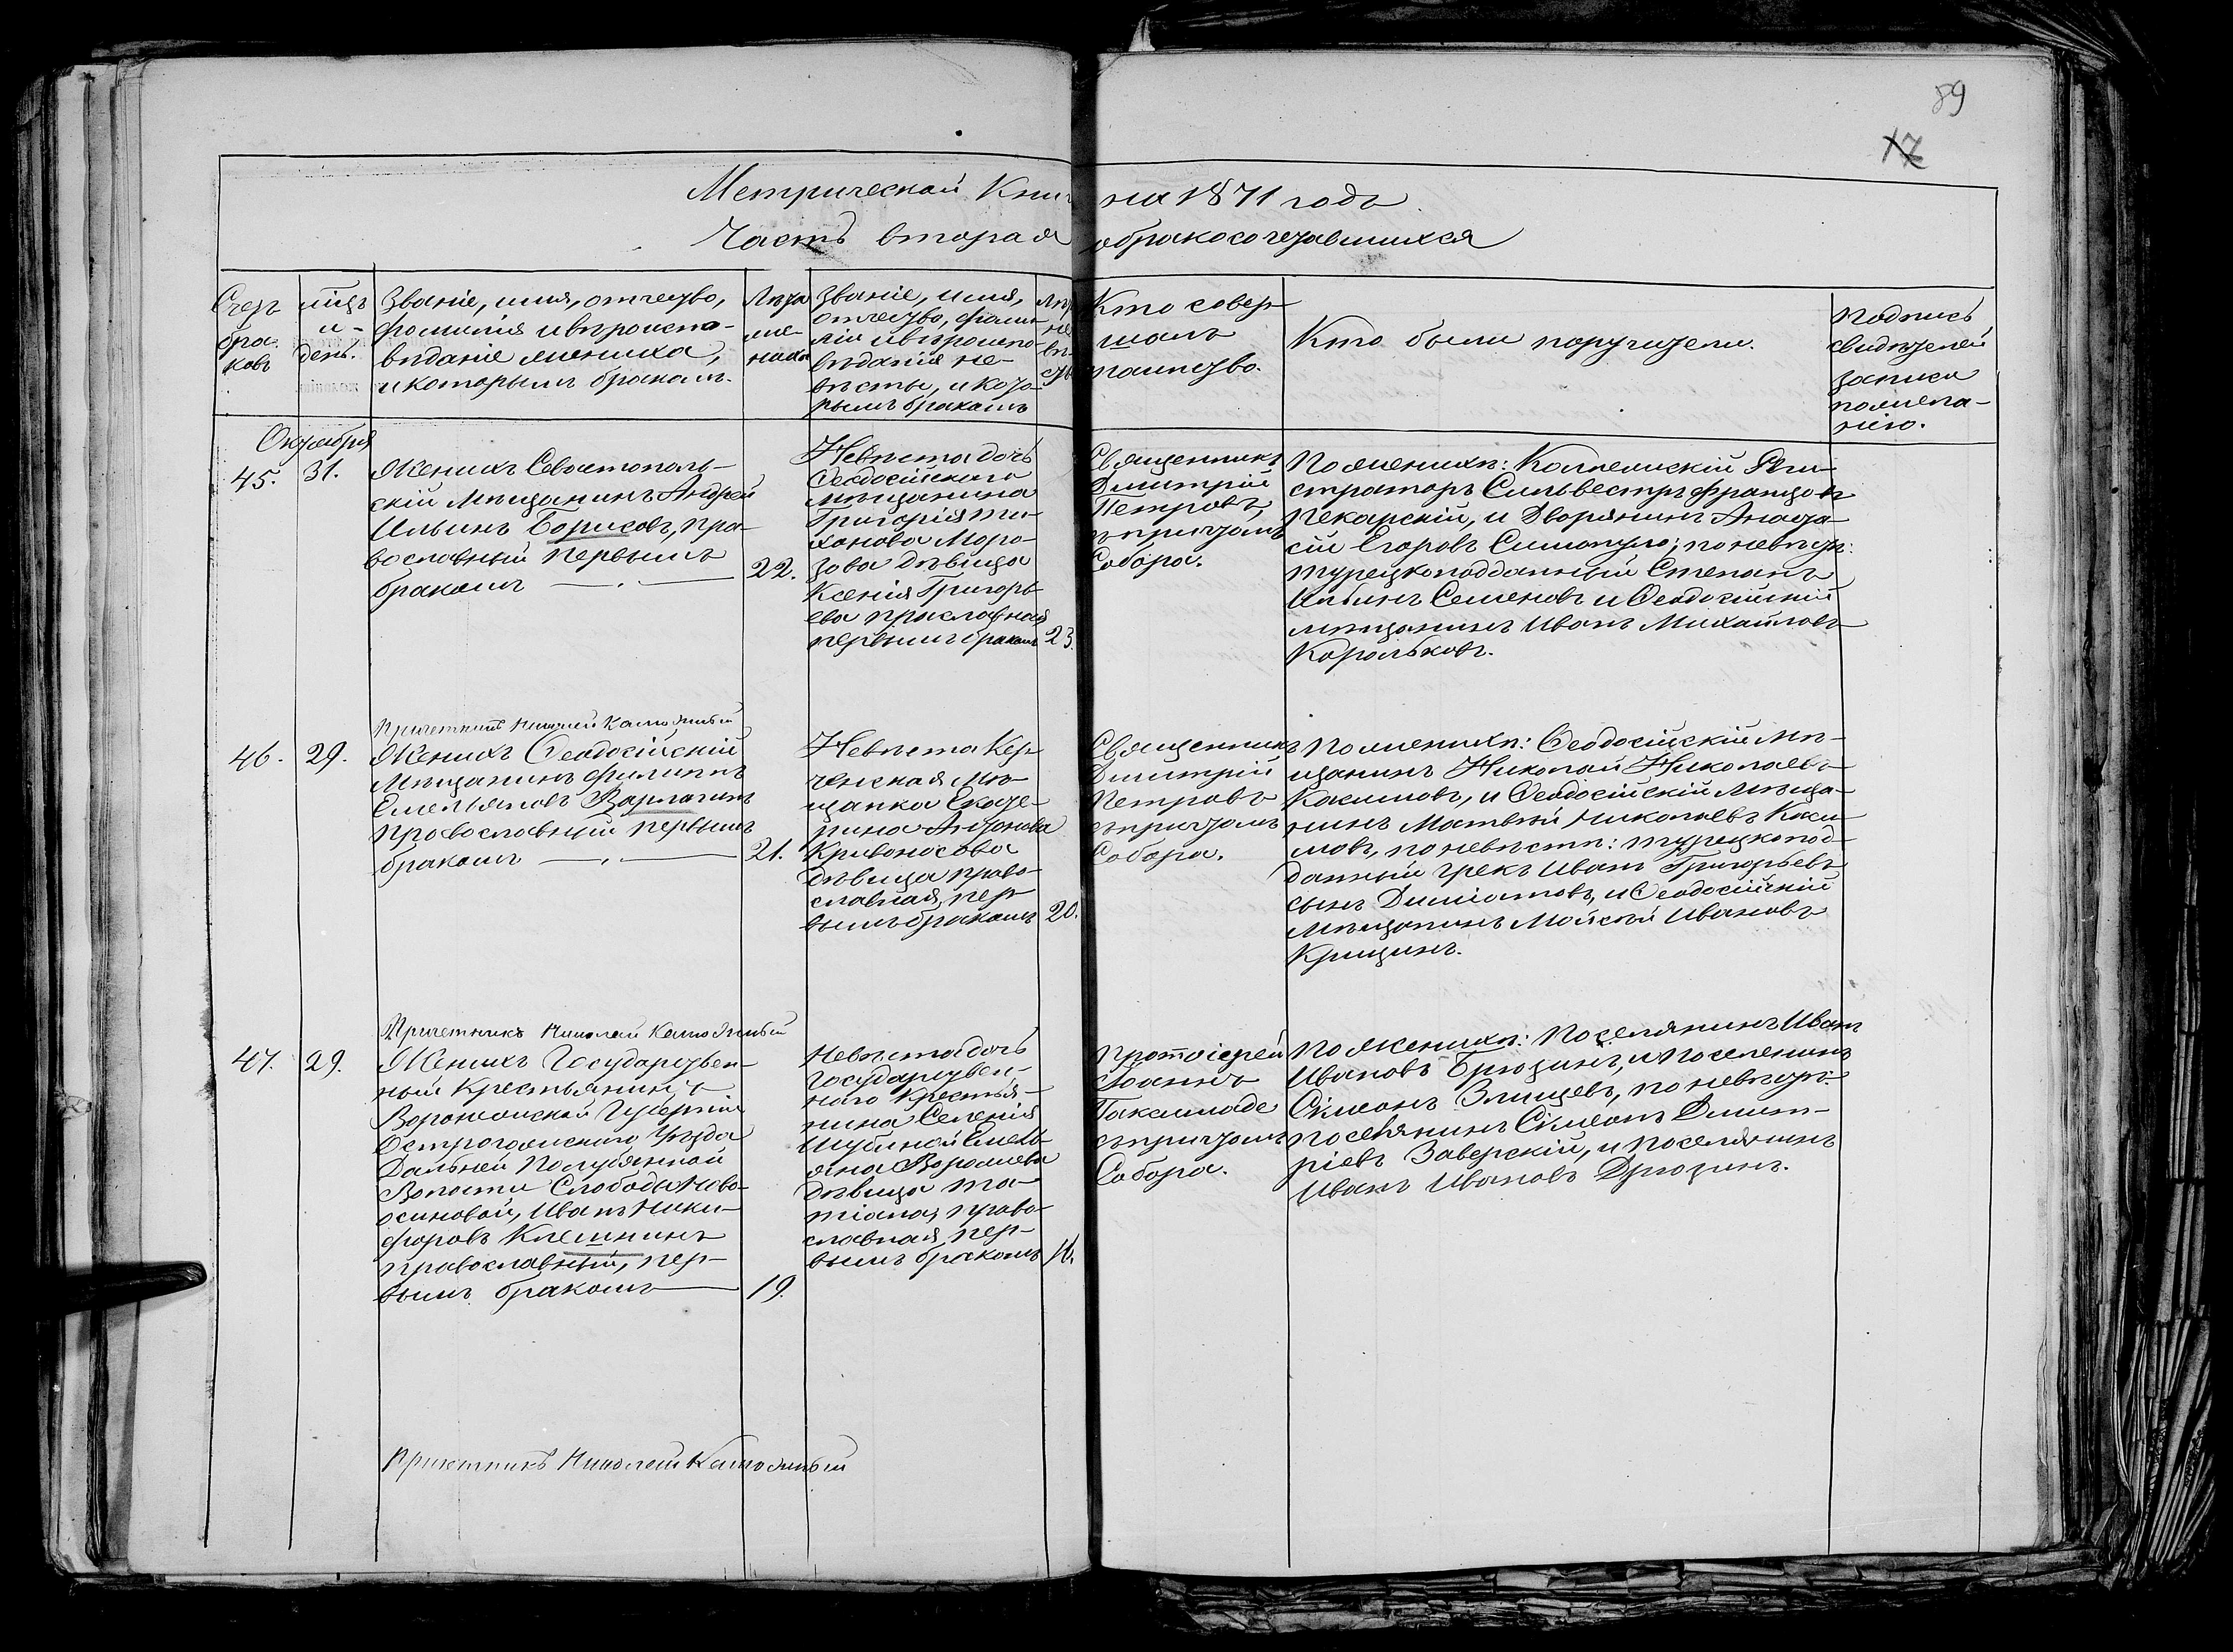 89
17
Метрической Книги на 1871 годъ
Часть вторая о бракосочетавшихся
Счетъ
бра-
ковъ
мцъ
и
день.
Званіе, имя, отчество,
фамилія и вѣроиспо-
вѣданіе жениха,
и которымъ бракомъ.
Лѣта
же-
ниха
Званіе, имя,
отчество, фами-
лія и вѣроиспо-
вѣданія не-
вѣсты, и кото-
рымъ бракомъ
Кто совер-
шалъ
таинство.
Кто были поручители.
Подпись
свидѣтелей
записи
по желa-
нію.
Октября
45.
31.
Женихъ Севастополь-
скій Мѣщанинъ Андрей
Ильинъ Борисовъ, пра-
вославный первымъ
бракомъ
22.
Невѣста дочь
Ѳеодосійскаго
Мѣщанина
Григорія Ти-
ханова Моро-
зова дѣвица
Ксенія Григорь-
ева праславная
первымъ бракомъ
23.
Священникъ
Димитрій
Петровъ,
съ причтомъ
Собора.
По женихѣ: Коллежскій Реги-
страторъ Сильвестръ Францовъ
Пекарскій, и Дворянинъ Анаста-
сій Егоровъ Симопуло; по невѣстѣ:
турецкоподданный Степанъ
Ильинъ Семеновъ и Ѳеодосійскій
мѣщанинъ Иванъ Михайловъ
Корольковъ.
Причетникъ Николай
46.
29.
Женихъ Ѳеодосійскій
Мѣщанинъ Филиппъ
Емельяновъ Варлагинъ
Православный первымъ
бракомъ
21.
Невѣста Кер-
ченская Мѣ-
щанка Екате-
рина Антонова
Кривоносова
дѣвица право-
славная, пер-
вымъ бракомъ
20.
Священникъ
Димитрій
Петровъ
съ причтомъ
Собора.
По женихѣ: Ѳеодосійскій Мѣ-
щанинъ Николай Николаевъ
Касимовъ, и Ѳеодосійскій Мѣща-
нинъ Матвѣй Николаевъ Каси-
мовъ, по невѣстѣ: турецкопод-
данный грекъ Иванъ Григорьевъ
сынъ и Ѳеодосійскій
Мѣщанинъ Мойсѣй Ивановъ
Крицинъ.
Причетникъ Николай
47.
29.
Женихъ Государствен-
ный Крестьянинъ
Воронежской Губерніи
Острогожскаго Уѣзда
Дальней Полубянской
Волости Слободы Ново-
осиновой, Иванъ Ники-
форовъ Клешнинъ
православный, пер-
вымъ бракомъ
19.
Невѣста дочь
Государствен-
наго крестья-
нина Селенія
Шубиной Емель-
яна Воромева
дѣвица Та-
тіана, право-
славная, пер-
вымъ бракомъ
16.
Протоіерей
Іоаннъ
съ причтомъ
Собора.
По женихѣ: Поселянинъ Иванъ
Ивановъ Брюзинъ, и поселенинъ
Сімеонъ Злищевъ, по невѣстѣ:
поселянинъ Сімеонъ Димит-
ріевъ Заверскій, и поселянинъ
Иванъ Ивановъ Дрюзинъ.
Причетникъ Николай